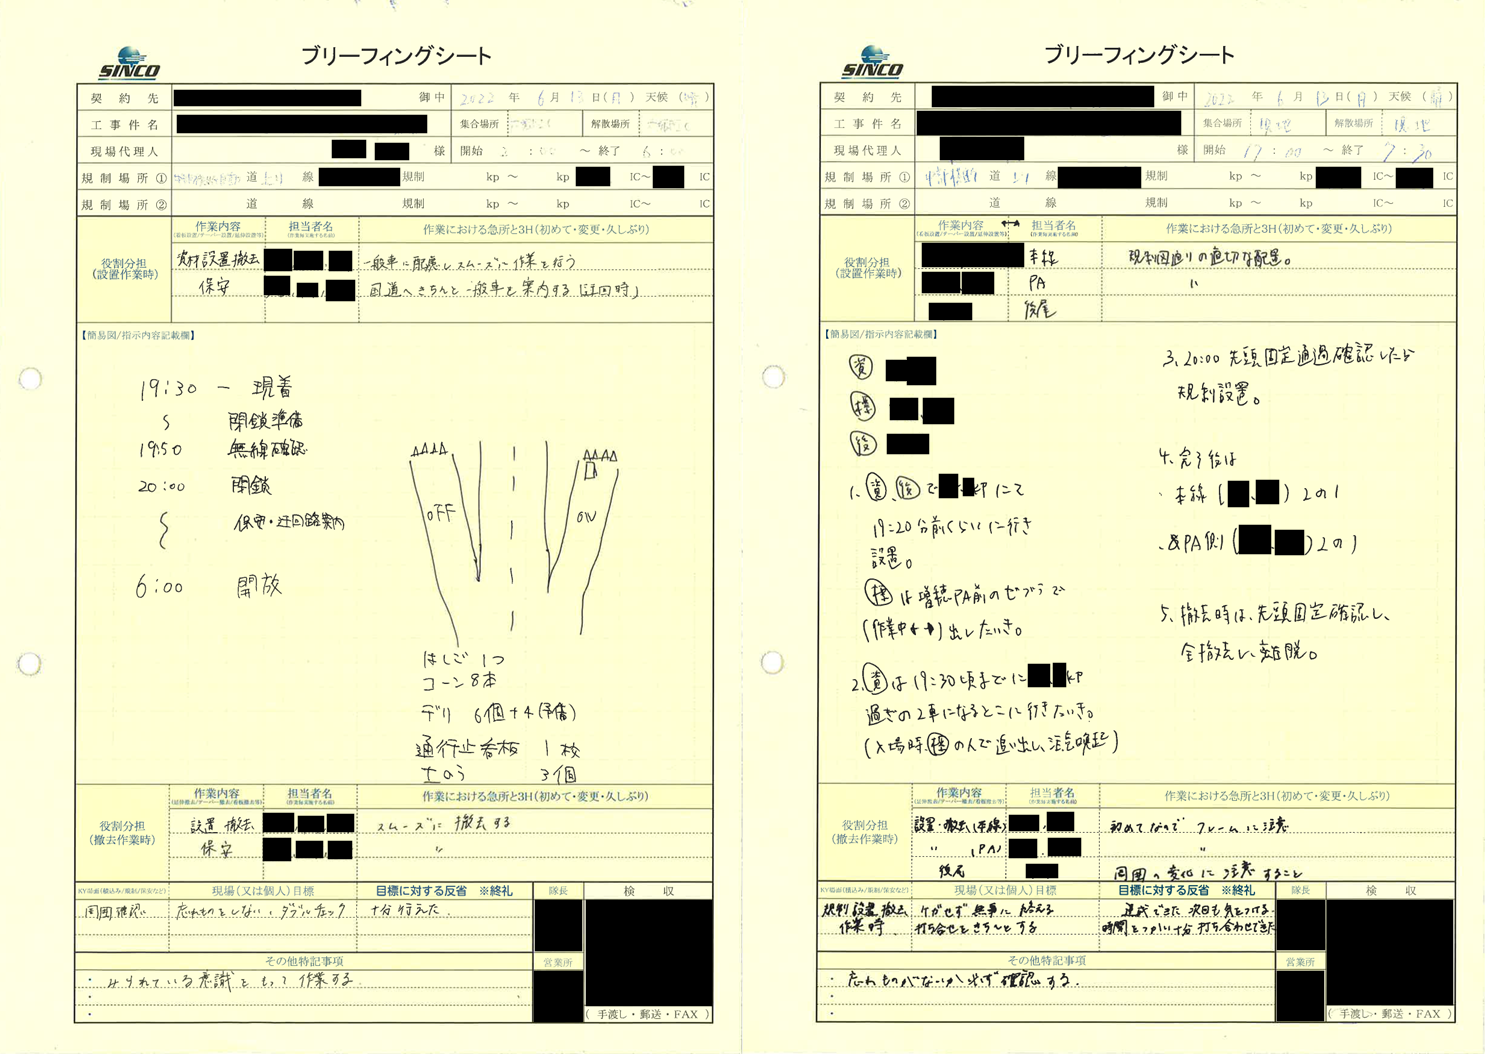 SINCO
ブリーフィングシート
契約先 御中 2022年 6月 13日(月) 天候(晴)
工事件名 集合場所 解散場所
現場代理人 様 開始 : 00 ～ 終了 6:00
規制場所① 道 上り 線 規制 kp ～ kp IC～ IC
規制場所② 道 線 規制 kp ～ kp IC～ IC
役割分担
(設置作業時)
作業内容 担当者名 作業における急所と3H(初めて・変更・久しぶり)
資材設置撤去 一般車に配慮しスムーズに作業を行う
保安 国道へきちんと一般車を案内する(迂回時)
【簡易図/指示内容記載欄】
19:30 ー 現着
～ 閉鎖準備
19:50 無線確認
20:00 閉鎖
～ 保安・迂回路案内
6:00 開放
OFF ON
はしご 1つ
コーン 8本
デリ 6個+4(予備)
通行止看板 1枚
土のう 3個
役割分担
(撤去作業時)
作業内容 担当者名 作業における急所と3H(初めて・変更・久しぶり)
設置 撤去 スムーズに 撤去する
保安 〃
KY場面(積込み/規制/保安など) 現場(又は個人)目標 目標に対する反省 ※終礼 隊長 検収
周囲確認 忘れものをしない、ダブルチェック 十分行えた.
その他特記事項 営業所
・みられている意識をもって作業する.
・
・
(手渡し・郵送・FAX)
SINCO
ブリーフィングシート
契約先 御中 2022年 6月 13日(月) 天候(晴)
工事件名 集合場所 現地 解散場所 現地
現場代理人 様 開始 19:00 ～ 終了 7:30
規制場所① 道 上り 線 規制 kp ～ kp IC～ IC
規制場所② 道 線 規制 kp ～ kp IC～ IC
役割分担
(設置作業時)
作業内容 担当者名 作業における急所と3H(初めて・変更・久しぶり)
本線 規制図通りの適切な配置。
PA 〃
後尾
【簡易図/指示内容記載欄】
資
標
後
1、資、後で KPにて
19:20分前くらいに行き
設置。
標は PA前のゼブラで
(作業中↔)出しときたい。
2、資は19:30頃までに kp
過ぎの2車になるとこに行きたいき。
(入場時、標の人で追い出し、注意喚起)
3、20:00 先頭固定通過確認したら
規制設置。
4、完了後は
・本線( 、 )2の1
・&PA側( 、 )2の1
5、撤去時は、先頭固定確認し、
全撤去し、離脱。
役割分担
(撤去作業時)
作業内容 担当者名 作業における急所と3H(初めて・変更・久しぶり)
設置・撤去(本線) 初めてなので フレームに注意
〃 (PA) 〃
後尾 周囲の変化に注意すること
KY場面(積込み/規制/保安など) 現場(又は個人)目標 目標に対する反省 ※終礼 隊長 検収
規制設置撤去 ケガせず無事に終える 達成できた 次回も気をつける.
作業時 打ち合せをきちんとする 時間をつかい十分打ち合わせできた
その他特記事項 営業所
・忘れものがないか必ず確認する.
・
・
(手渡し・郵送・FAX)